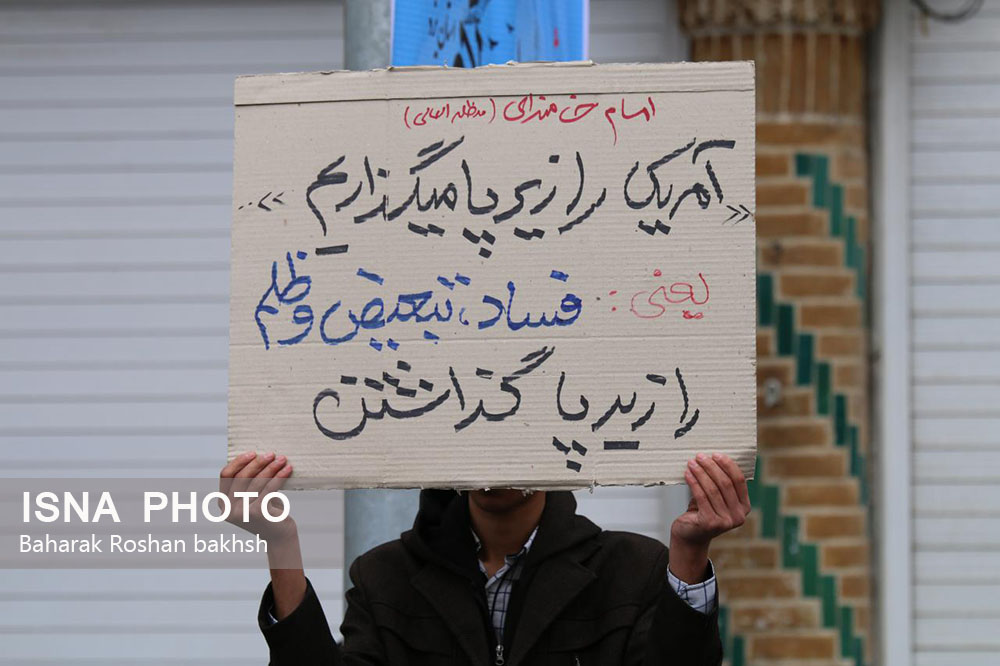 استان یزد
امام خامنه‌ای (مدظله العالی)
«آمریکا را زیر پا میگذاریم» ..
یعنی: فساد، تبعیض و ظلم
را زیر پا گذاشتن
ISNA PHOTO
Baharak Roshan bakhsh